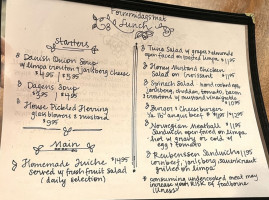 Formiddagsmat
Lunch
Starters
Danish Onion Soup
w/ limpa crouton & jarlsberg cheese
$4.95 $5.95
Dagens Soup
$4.95
House Pickled Herring
$9.95
Main
Homemade Quiche $14.95
served w/ fresh fruit salad
(daily selection)
Tuna Salad w/ grapes & almonds
open faced on toasted limpa
Honey Mustard Chicken
Salad on Croissant
Spinach Salad hard cooked egg,
jarlsberg, cheddar, tomato, bacon,
croutons w/ mustard vinaigrette
Burger & Cheeseburger
angus beef
Norwegian Meatball
Sandwich open faced on limpa
hot w/ gravy or cold w/
egg & tomato
Reubensson Sandwich
corn beef, jarlsberg, sauerkraut
grilled on limpa
consuming undercooked meat may
increase your RISK of foodborne
illness!